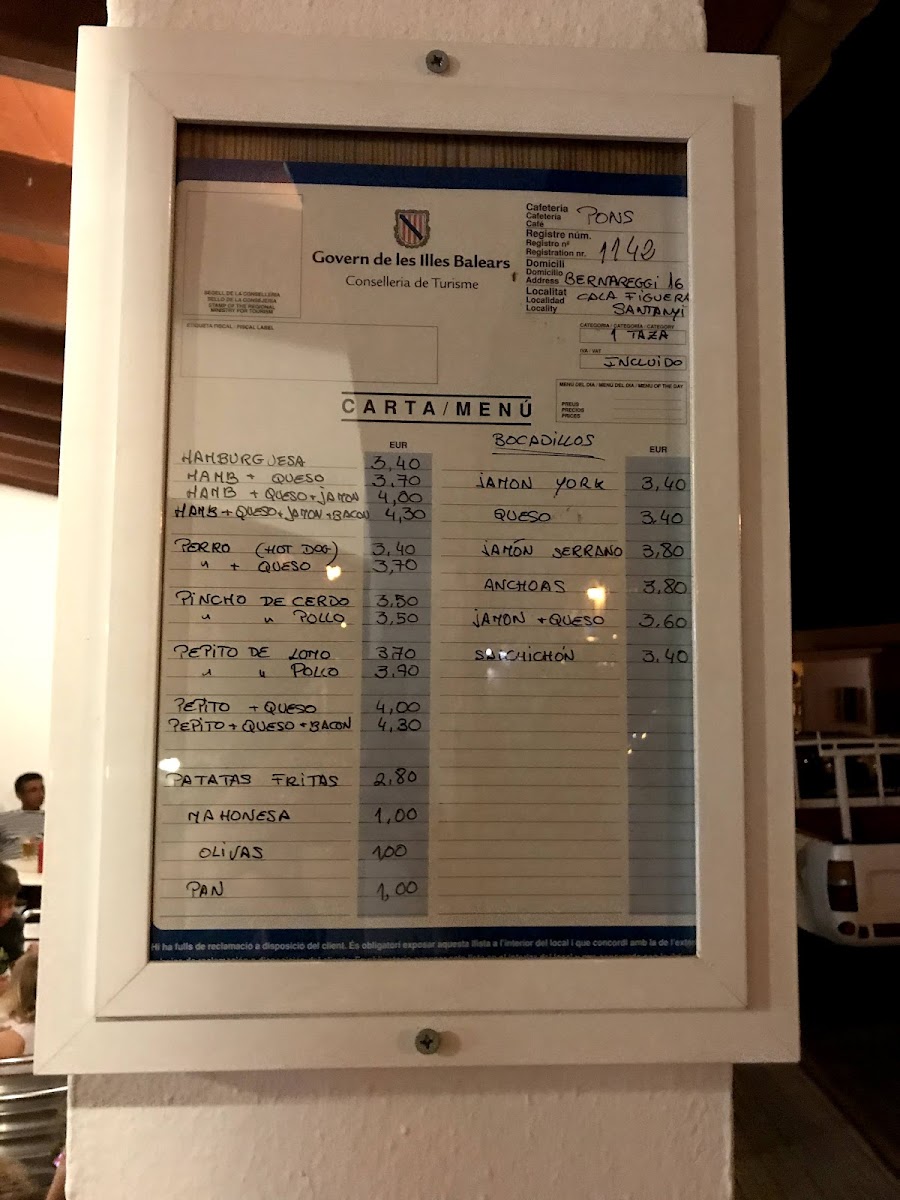 SEGELL DE LA CONSELLERIA
SELLO DE LA CONSEJERIA
STAMP OF THE REGIONAL
MINISTRY FOR TOURISM
ETIQUETA FISCAL / FISCAL LABEL
Govern de les Illes Balears
Conselleria de Turisme
Cafeteria
Cafetería
Café
PONS
Registre núm.
Registro nº
Registration nr.
1142
Domicili
Domicilio
Address
BERNAREGGI 16
Localitat
Localidad
Locality
CALA FIGUERA
SANTANYI
CATEGORIA / CATEGORÍA / CATEGORY
1 TAZA
IVA / VAT
INCLUIDO
MENÚ DEL DIA / MENÚ DEL DÍA / MENU OF THE DAY
PREUS
PRECIOS
PRICES
CARTA/MENÚ
EUR
HAMBURGUESA 3,40
HAMB + QUESO 3,70
HAMB + QUESO+JAMON 4,00
HAMB+QUESO+JAMON+BACON 4,30
PERRO (HOT DOG) 3,40
" + QUESO 3,70
PINCHO DE CERDO 3,50
" " POLLO 3,50
PEPITO DE LOMO 3,70
" " POLLO 3,90
PEPITO + QUESO 4,00
PEPITO+QUESO+BACON 4,30
PATATAS FRITAS 2,80
MAHONESA 1,00
OLIVAS 1,00
PAN 1,00
BOCADILLOS
EUR
JAMON YORK 3,40
QUESO 3.40
JAMÓN SERRANO 3,80
ANCHOAS 3,80
JAMON +QUESO 3.60
SALCHICHÓN 3.40
Hi ha fulls de reclamació a disposició del client. És obligatori exposar aquesta llista a l'interior del local i que concordi amb la de l'exter